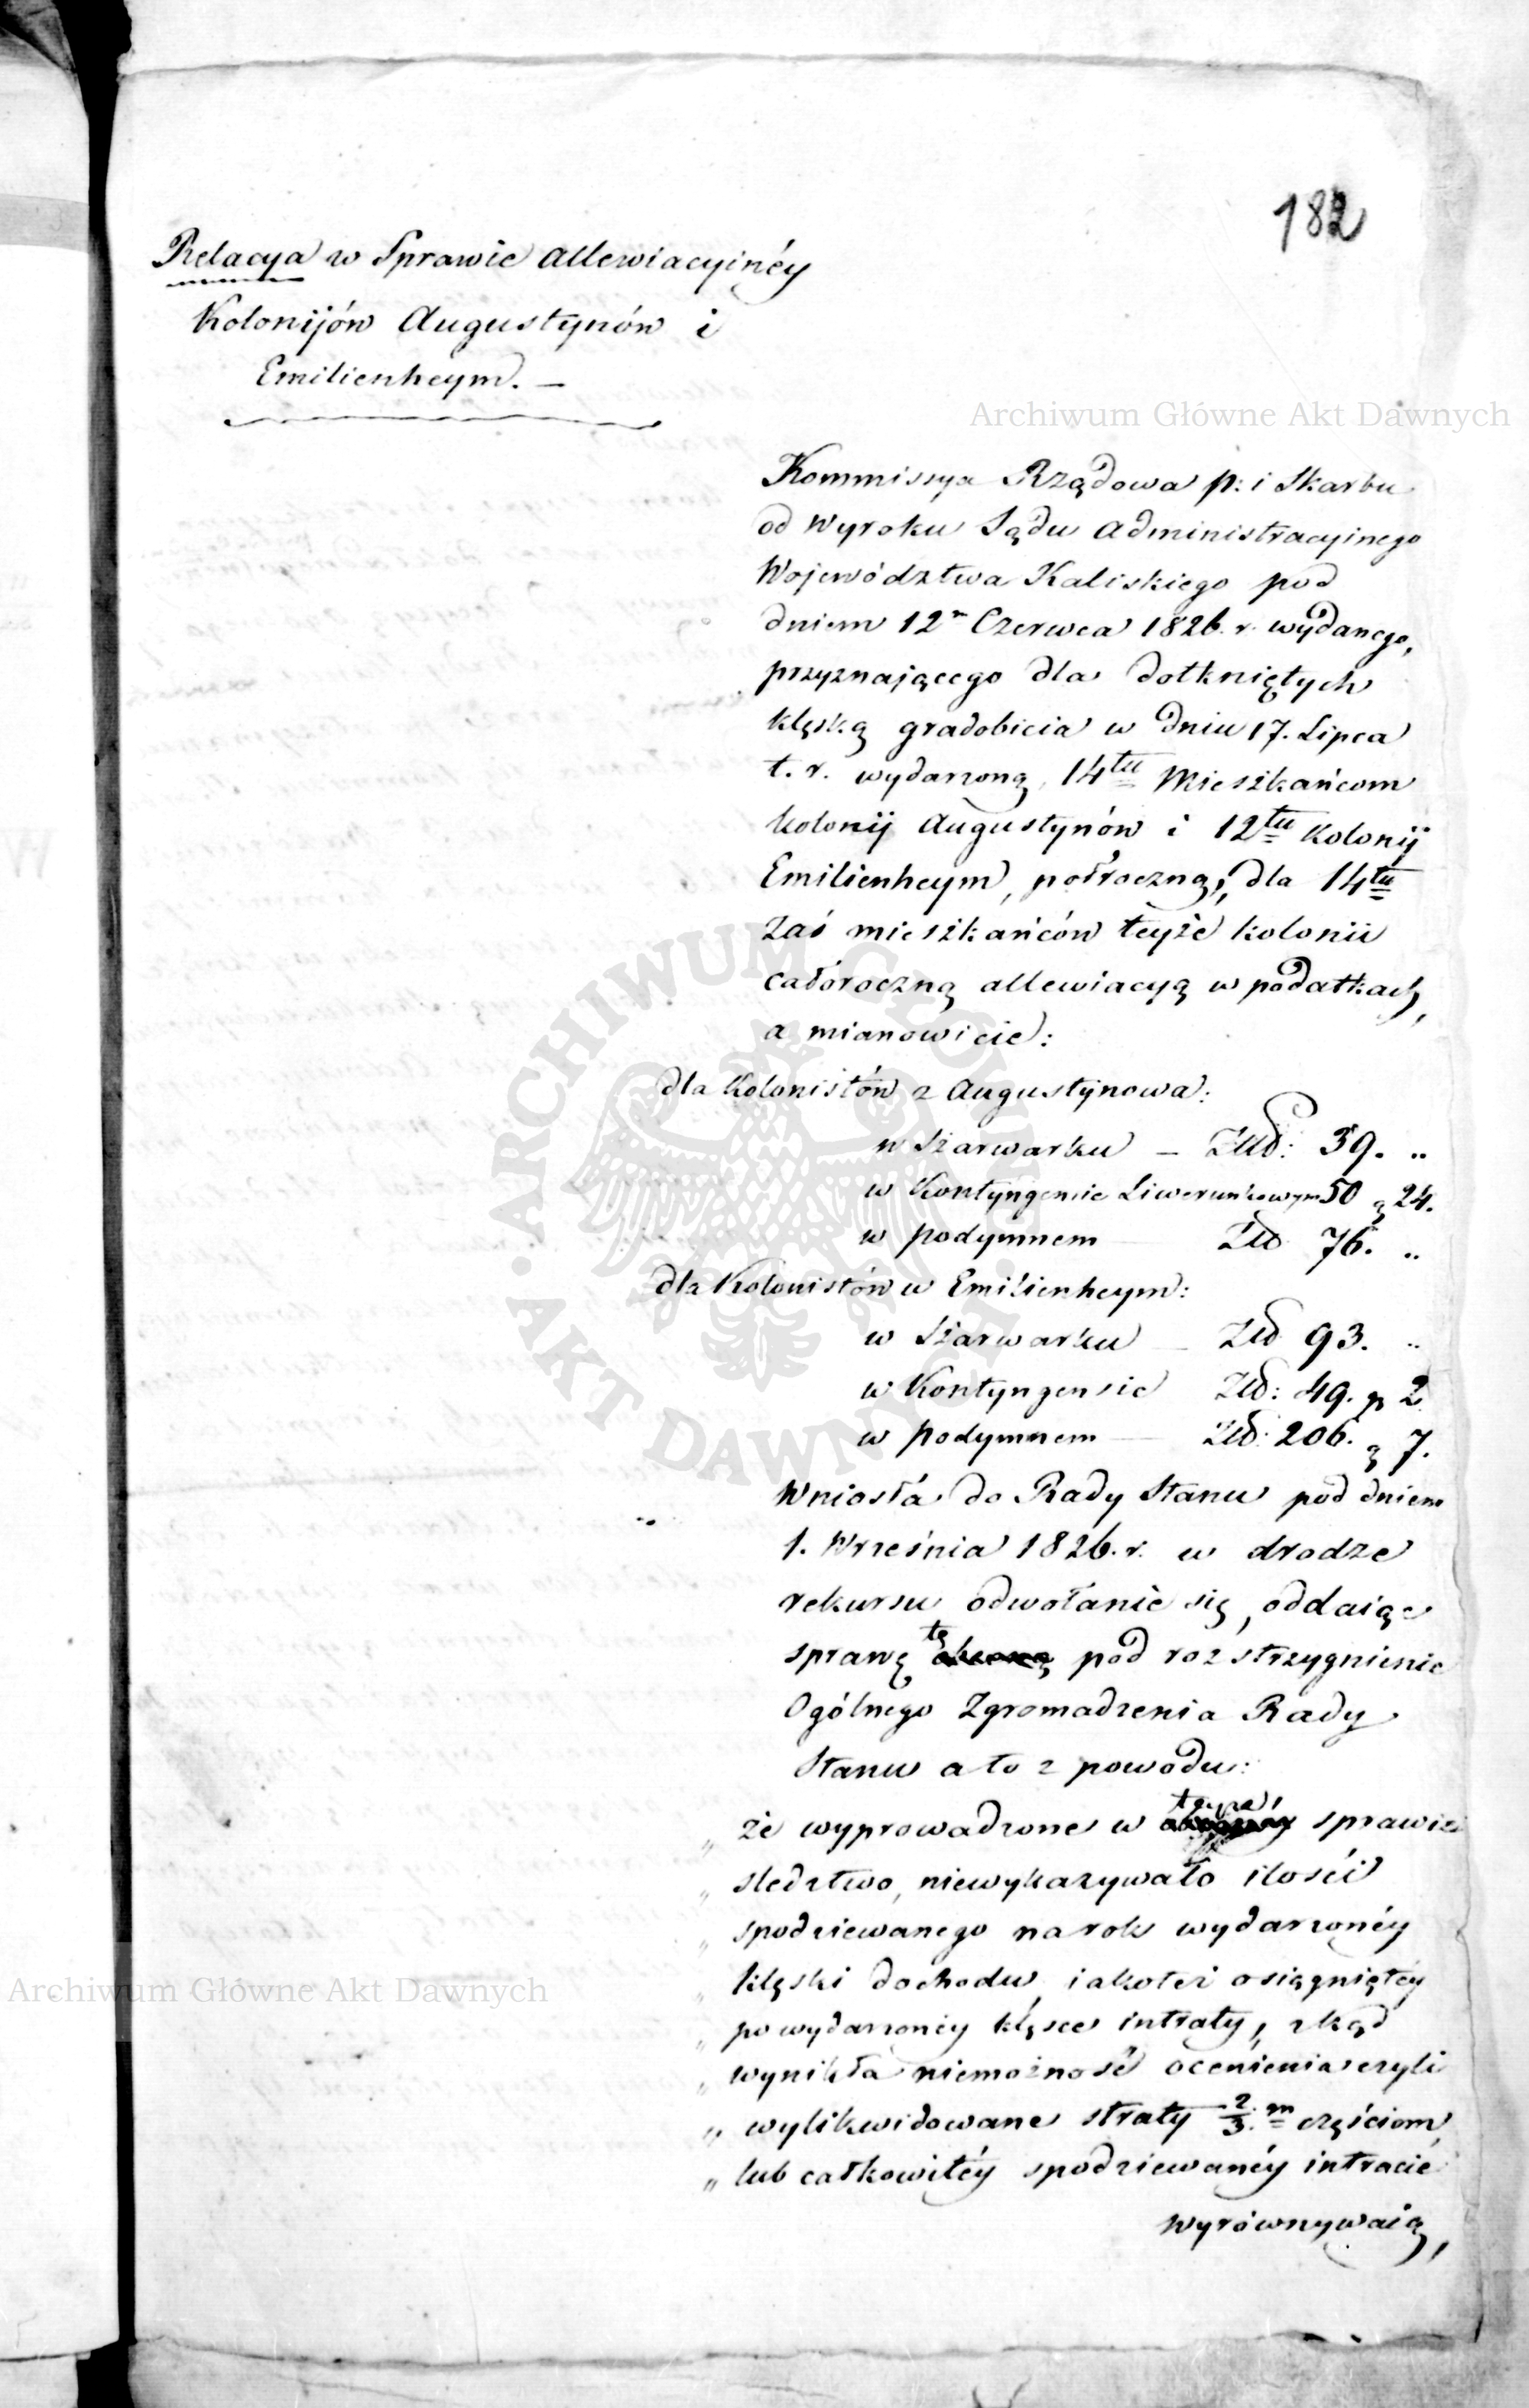 182
Relacya w Sprawie Allewiacyinéy
Kolonijów Augustynów i
Emilienheym. —
Archiwum Główne Akt Dawnych
Kommissya Rządowa p: i Skarbu
od Wyroku Sądu Administracyinego
Województwa Kaliskiego pod
dniem 12 Czerwca 1826. r. wydanego,
przyznającego dla dotkniętych
klęską gradobicia w dniu 17. Lipca
t. r. wydarzoną, 14tu Mieszkańcom
kolonij Augustynów i 12tu Kolonij
Emilienheym, półroczną, dla 14tu
Zaś mieszkańców teyże kolonii
całoroczną allewiacyą w podatkach,
a mianowicie:
dla Kolonistów z Augustynowa:
w Szarwarku — Złd: 39. "
w Kontyngensie Liwerunkowym 50 g 24.
w podymnem Złd 76. "
dla Kolonistów w Emilienheym:
w Szarwarku — Złd 93. "
w Kontyngensie Złd: 49. g 2
w podymnem — Złd: 206. g 7.
Wniosła do Rady Stanu pod dniem
1. Września 1826. r. w drodze
rekursu odwołanie się, oddaiąc
sprawę tę pod rozstrzygnienie
Ogólnego Zgromadzenia Rady
Stanu a to z powodu:
„ że wyprowadzone w teyże sprawie
„ sledztwo, niewykazywało ilości
„ spodziewanego na rok wydarzonéy
„ klęski dochodu, iakoteż osiągniętéy
„ po wydarzonéy klęsce intraty, zkąd
„ wynikła niemożność ocenienia czyli
„ wylikwidowane straty 2/3m częściom,
„ lub całkowitéy spodziewanéy intracie
wyrównywaią,
Archiwum Główne Akt Dawnych
ARCHIWUM GŁÓWNE
AKT DAWNYCH